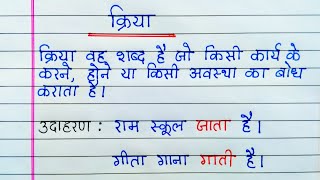 क्रिया
क्रिया वह शब्द है जो किसी कार्य के
करने, होने या किसी अवस्था का बोध
कराता है।
उदाहरण : राम स्कूल जाता है।
गीता गाना गाती है।